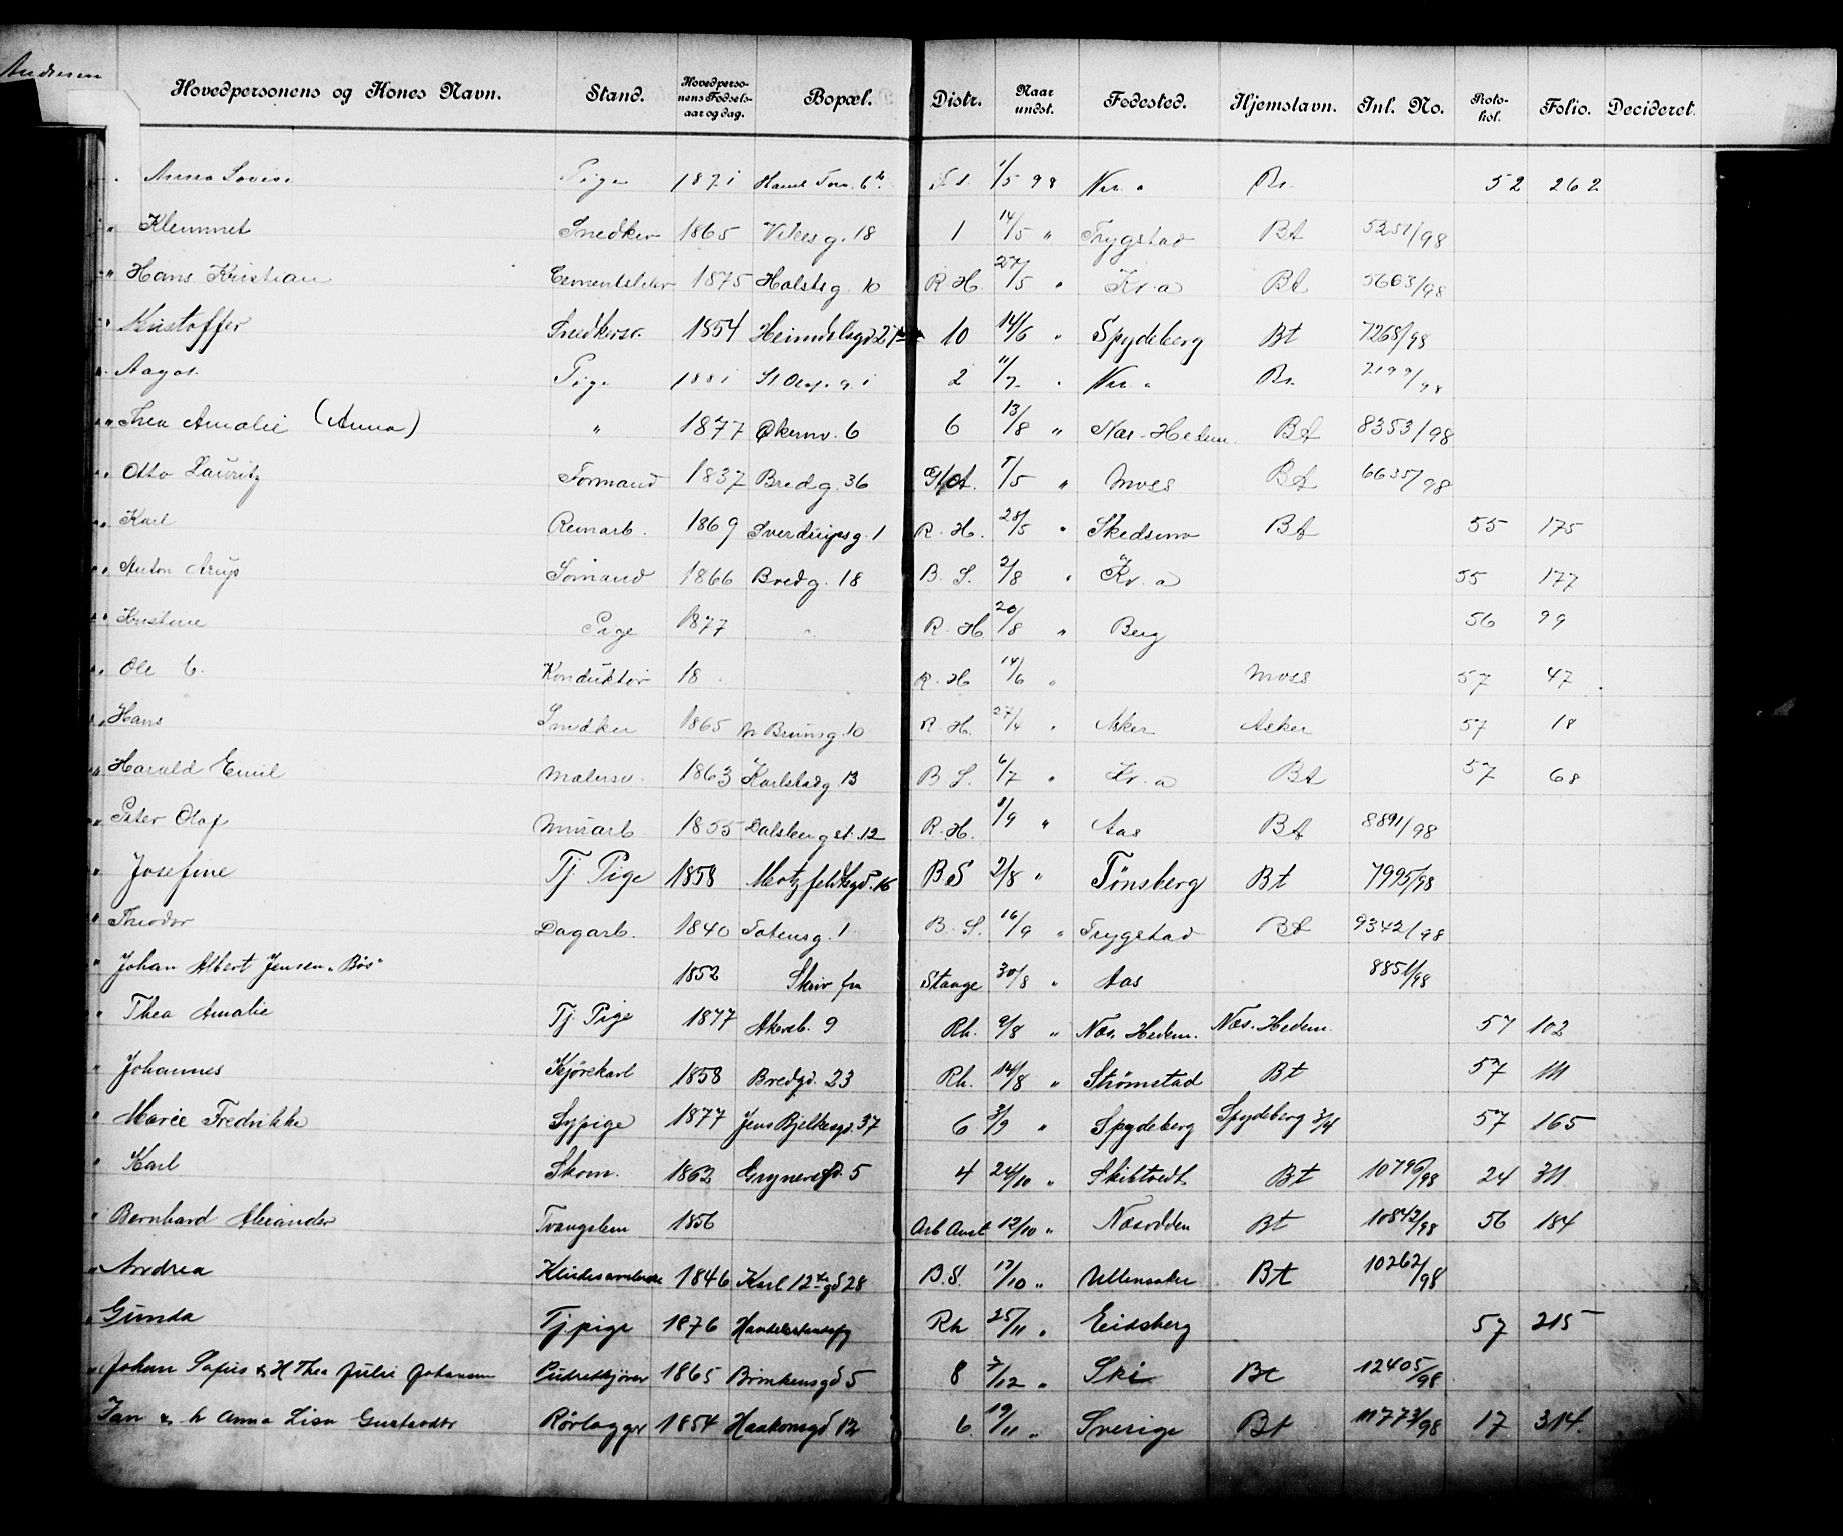 Andresen
Hovedpersonens og Kones Navn. Stand. Hovedpersonens Fødselsaar og dag. Bopæl. Distr. Naar undst. Fødested. Hjemstavn. Inl. No. Protokol. Folio. Decideret.
Anna Lovise Pige 1871 1/5 98 Bt. 52 262
" Klemmet Snedker 1865 g. 18 1 14/5 " Trygstad Bt 5251/98
" Hans Kristian 1875 Holstsg. 10 R. H. 27/5 " Kr.a Bt 5603/98
" Kristoffer Snedkersv. 1854 Heimdalsgd 10 14/6 " Spydeberg Bt 7268/98
" Aagot Pige 1881 St Olafs g. 1 2 11/7 " Kr. a Bt. 2199/98
" Thea Amalie (Anna) " 1877 Økernv. 6 6 13/8 " Næs-Hedem. Bt 8353/98
" Otto Lauritz Formand 1837 Bredg. 36 5/5 " Moss Bt 6635/98
" Karl Renarb. 1869 Sverdrupsg. 1 R. H. 28/5 " Skedsmo Bt 55 175
" Anton Arup Sømand 1866 Bredg. 18 B. S. 2/8 " Kr. a 55 177
" Kristine Pige 1877 " R. H 20/8 " Berg 56 99
" Ole C. Konduktør 18 R. H 14/6 " Moss 57 47
" Hans Snedker 1865 Brunsg. 10 R. H. 27/4 " Asker Asker 57 18
" Harald Emil Malersv. 1863 Karlstadg. 13 B S. 6/7 " Kr. a Bt 57 68
" Peter Olaf Murarb. 1855 Dalsbergst. 12 R. H. 1/9 " Aas Bt 8891/98
" Josefine Tj Pige 1858 Motzfeldtsgd. 16 B. S 2/8 " Tönsberg Bt 7995/98
" Theodor Dagarb. 1840 Totensg. 1 B. S. 16/9 " Trygstad Bt 9342/98
" Johan Albert Jensen "Bös" 1852 Skriv fra Stange 30/8 " Aas 8851/98
" Thea Amalie Tj. Pige 1877 Akersb. 9 Rh. 9/8 " Næs. Hedem. Næs. Hedem. 57 102
" Johannes Kjörekarl 1858 Bredgd. 23 Rh. 14/8 " Strömstad Bt 57 111
" Marie Fredrikke Sypige 1877 Jens Bjelkesgd. 37 6 3/9 " Spydeberg Spydeberg 3/4 57 165
" Karl Skom. 1862 Grünersgd. 5 4 24/10 " Skibtvedt Bt 10796/98 24 311
" Bernhard Alexander Tvangslem 1856 Arb Anst 12/10 " Næsodden Bt 10842/98 56 184
" Andrea 1846 Karl 12tes gd 28 B. S. 17/10 " Ullensaker Bt 10262/98
" Gunda Tjpige 1876 Rh 25/11 " Eidsberg 57 215
" Johan Sofus & H Thea Julie Johansen Pudretkjörer 1865 Brinkensgd 5 8 7/12 " Ski Bt 12405/98
Jan & h Anna Lisa Gustavdtr Rörlægger 1854 Haakonsgd 12 6 19/11 " Sverige Bt 11773/98 17 314.